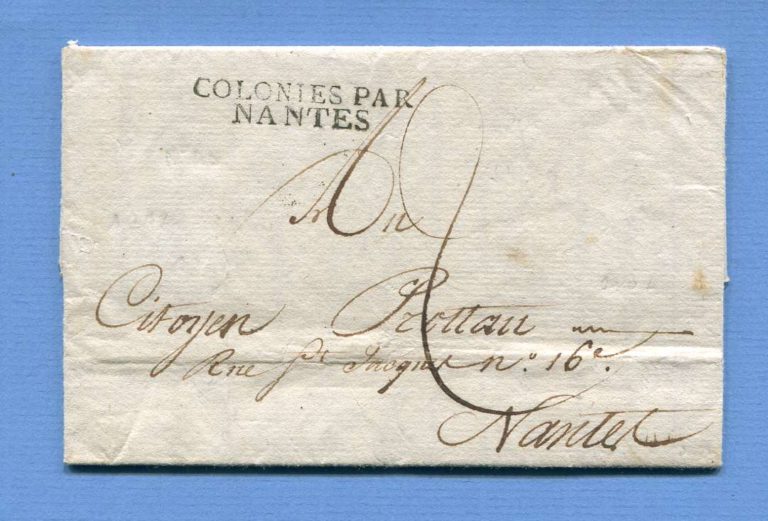 COLONIES PAR
NANTES
Au
Citoyen Rottau
Rue St Jacques n.o 16e.
Nantes